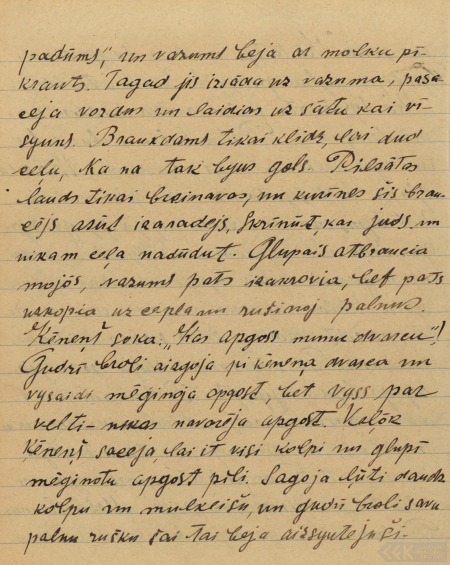 padūms", un vazums beja ar molku pī-
krauts. Tagad jis izsāda uz vazuma, pasa-
ceja vordus un laidias uz sātu kai vī-
syuns. Braukdams tikai klidz, lai dud
celu, ka na tak byus gols. Pilsātas
lauds tikai breinavos, nu kurīnes šis brau-
cējs asūt izaradejs, skrīnūt, kai juds, un
nikam ceļa nadūdūt. Glupais atbraucia
mojōs, vazums pats izakrovia, bet pats
uzkopia uz cepla un rušinoj palnus.
Ķēneņš soka: "Kas apgoss munu dvaseu"!
Gudrī broli aizgoja pi ķēneņa dvasea un
vysaidi mēginoja apgost, bet vyss par
velti - nikas navarēja apgost. Kaļōk
Ķēneņš saceja, lai it visi kolpi un glupī
mēginotu apgost pili. Sagoja lūti daudz
kolpu un mulkeišu, un gudri broli savu
palnu rušku šai tai beja aizsyutejuši.